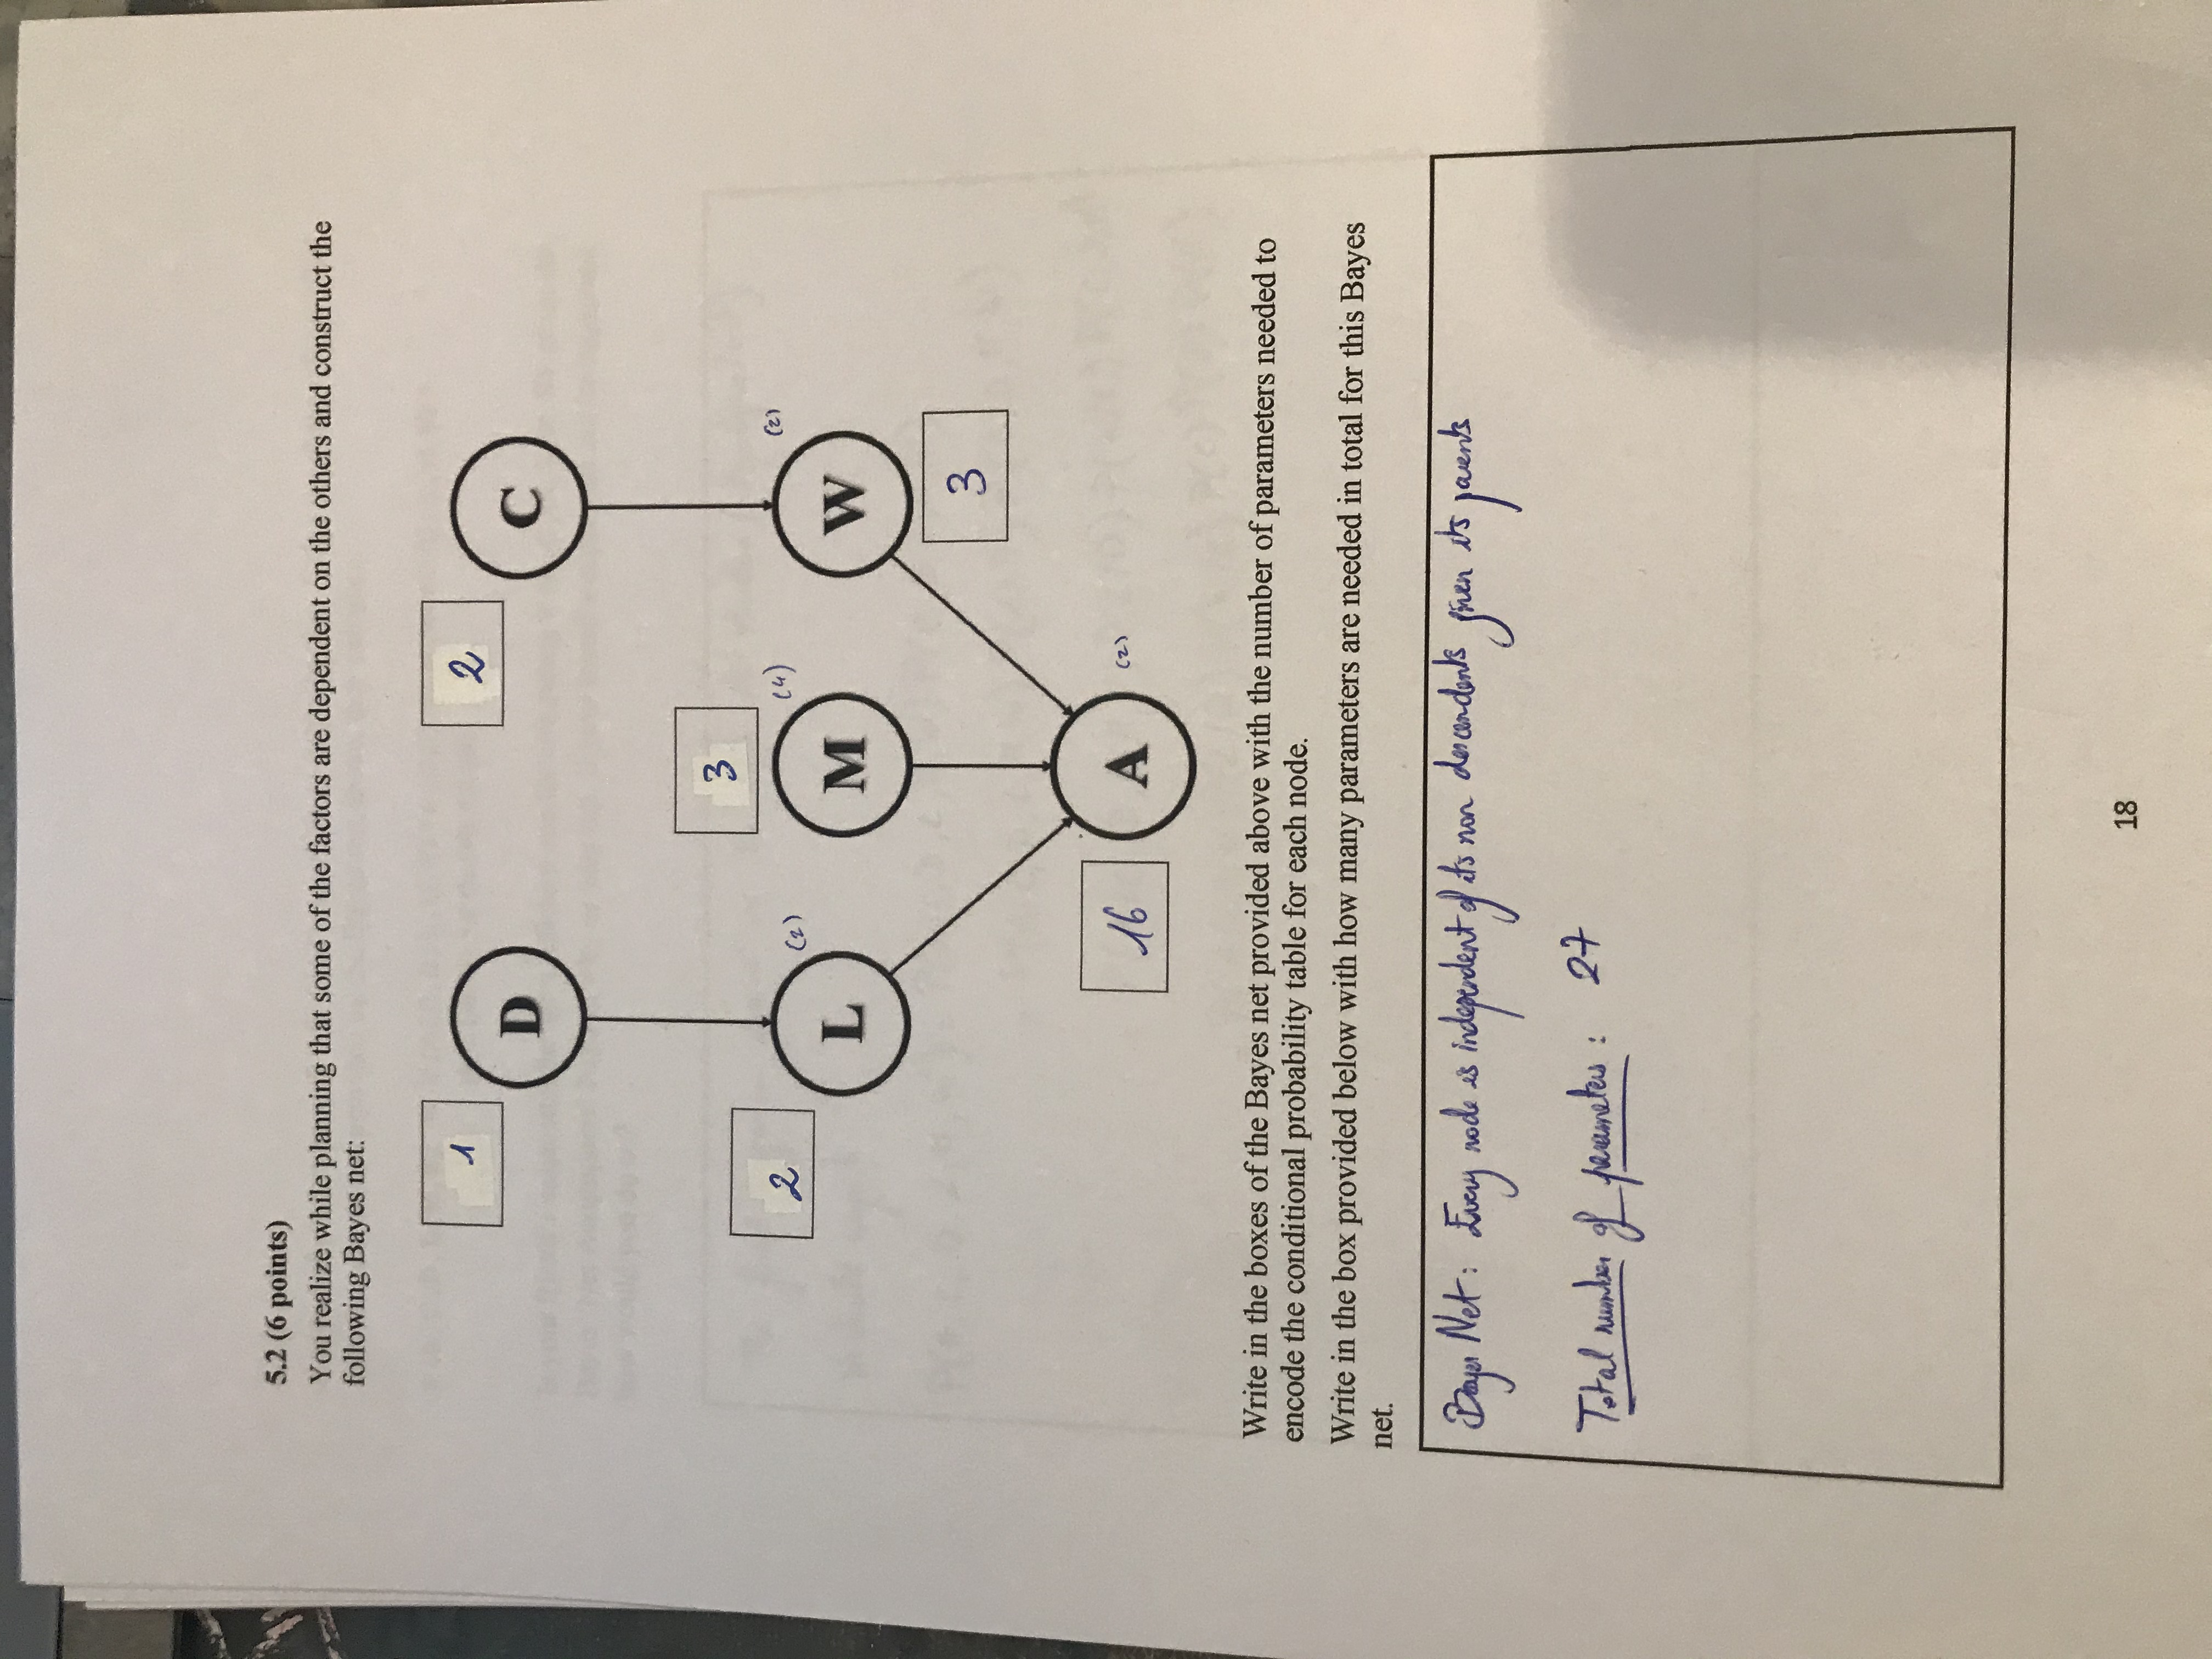 5.2 (6 points)
You realize while planning that some of the factors are dependent on the others and construct the
following Bayes net:
1
D
2
C
2
L
(2)
3
M
(4)
W
(2)
3
16
A
(2)
Write in the boxes of the Bayes net provided above with the number of parameters needed to
encode the conditional probability table for each node.
Write in the box provided below with how many parameters are needed in total for this Bayes
net.
Bayes Net: Every node is independent of its non descendents given its parents
Total number of parameters : 27
18